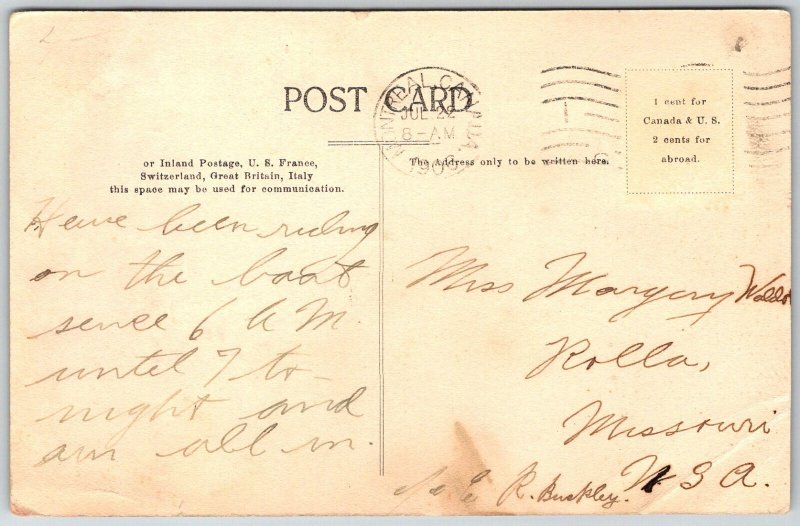 POST CARD
MONTREAL, CANADA
JUL 22
8-AM
1 cent for
Canada & U. S.
2 cents for
abroad.
or Inland Postage, U. S. France,
Switzerland, Great Britain, Italy
this space may be used for communication.
The Address only to be written here.
Have been riding
on the boat
sence 6 A M.
until 7 to-
night and
am all in.
Miss Margery
Rolla,
Missouri
U S A.
R. Buckley.